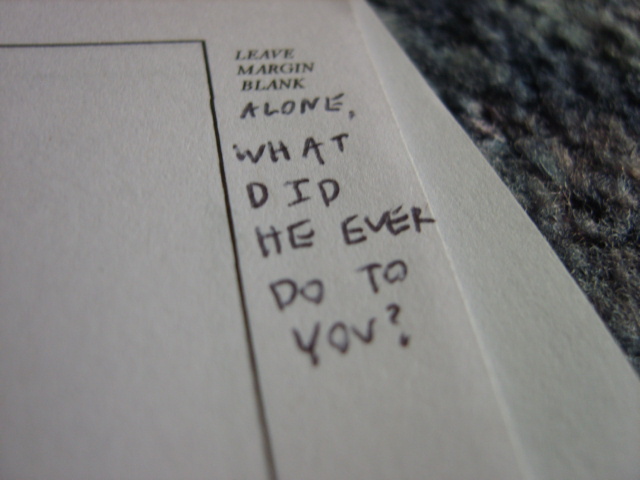 LEAVE
MARGIN
BLANK
ALONE,
WHAT
DID
HE EVER
DO TO
YOU?